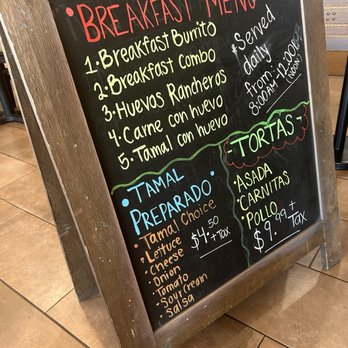 • BREAKFAST MENU
1. Breakfast Burrito
2. Breakfast Combo
3. Huevos Rancheras
4. Carne con huevo
5. Tamal con huevo
* Served
daily
from
8:00AM - 12:00PM
(NOON)
• TAMAL
PREPARADO •
• Tamal Choice
• Lettuce
• Cheese
• Onion
• Tomato
• Sour Cream
• Salsa
$4.50
+ Tax
- TORTAS -
• ASADA
• CARNITAS
• POLLO
$9.99 +
Tax